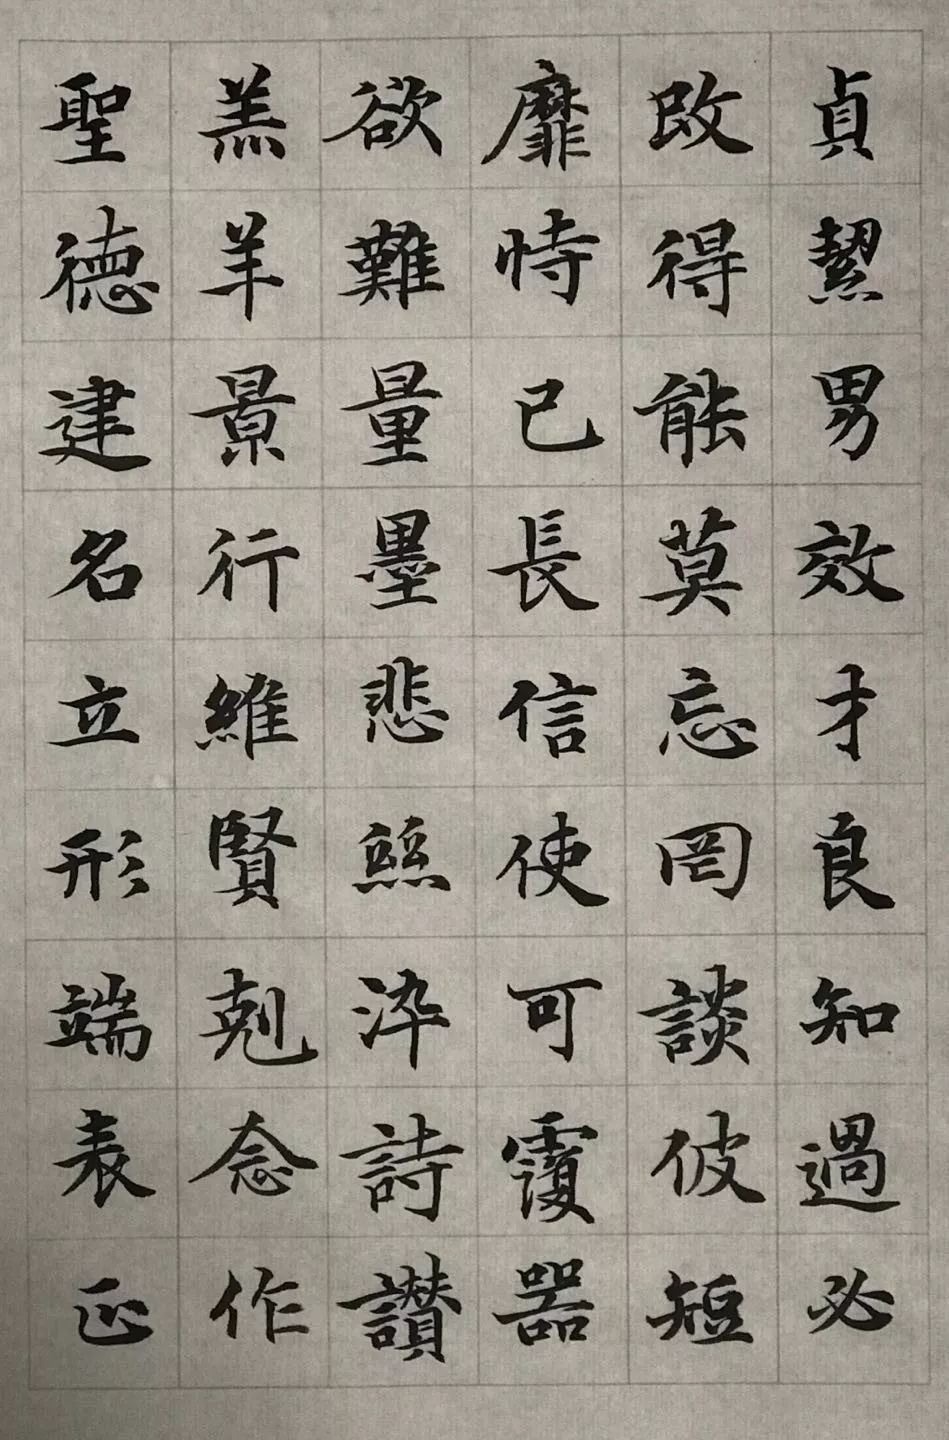 貞絜男效才良知過必
改得能莫忘罔談彼短
靡恃己長信使可覆器
欲難量墨悲絲染詩讃
羔羊景行維賢剋念作
聖德建名立形端表正